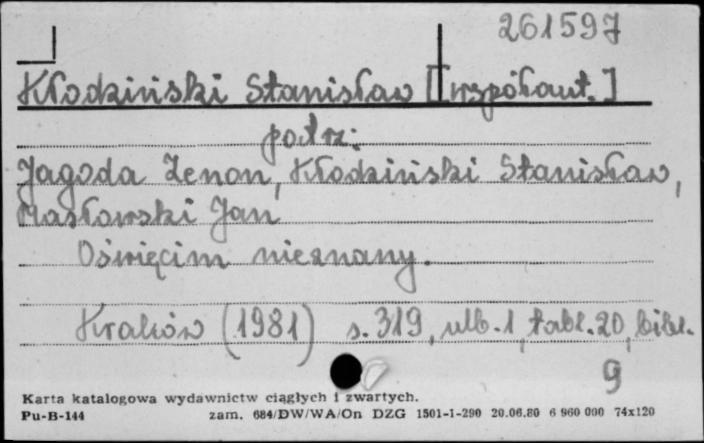 261597
Kłodziński Stanisław [współaut.]
patrz:
Jagoda Zenon, Kłodziński Stanisław,
Masłowski Jan
Oświęcim nieznany.
Kraków (1981) s. 319, nlb. 1, tabl. 20, bibl.
9
Karta katalogowa wydawnictw ciągłych i zwartych.
Pu-B-144 zam. 684/DW/WA/On DZG 1501-1-290 20.06.80 6 960 000 74x120